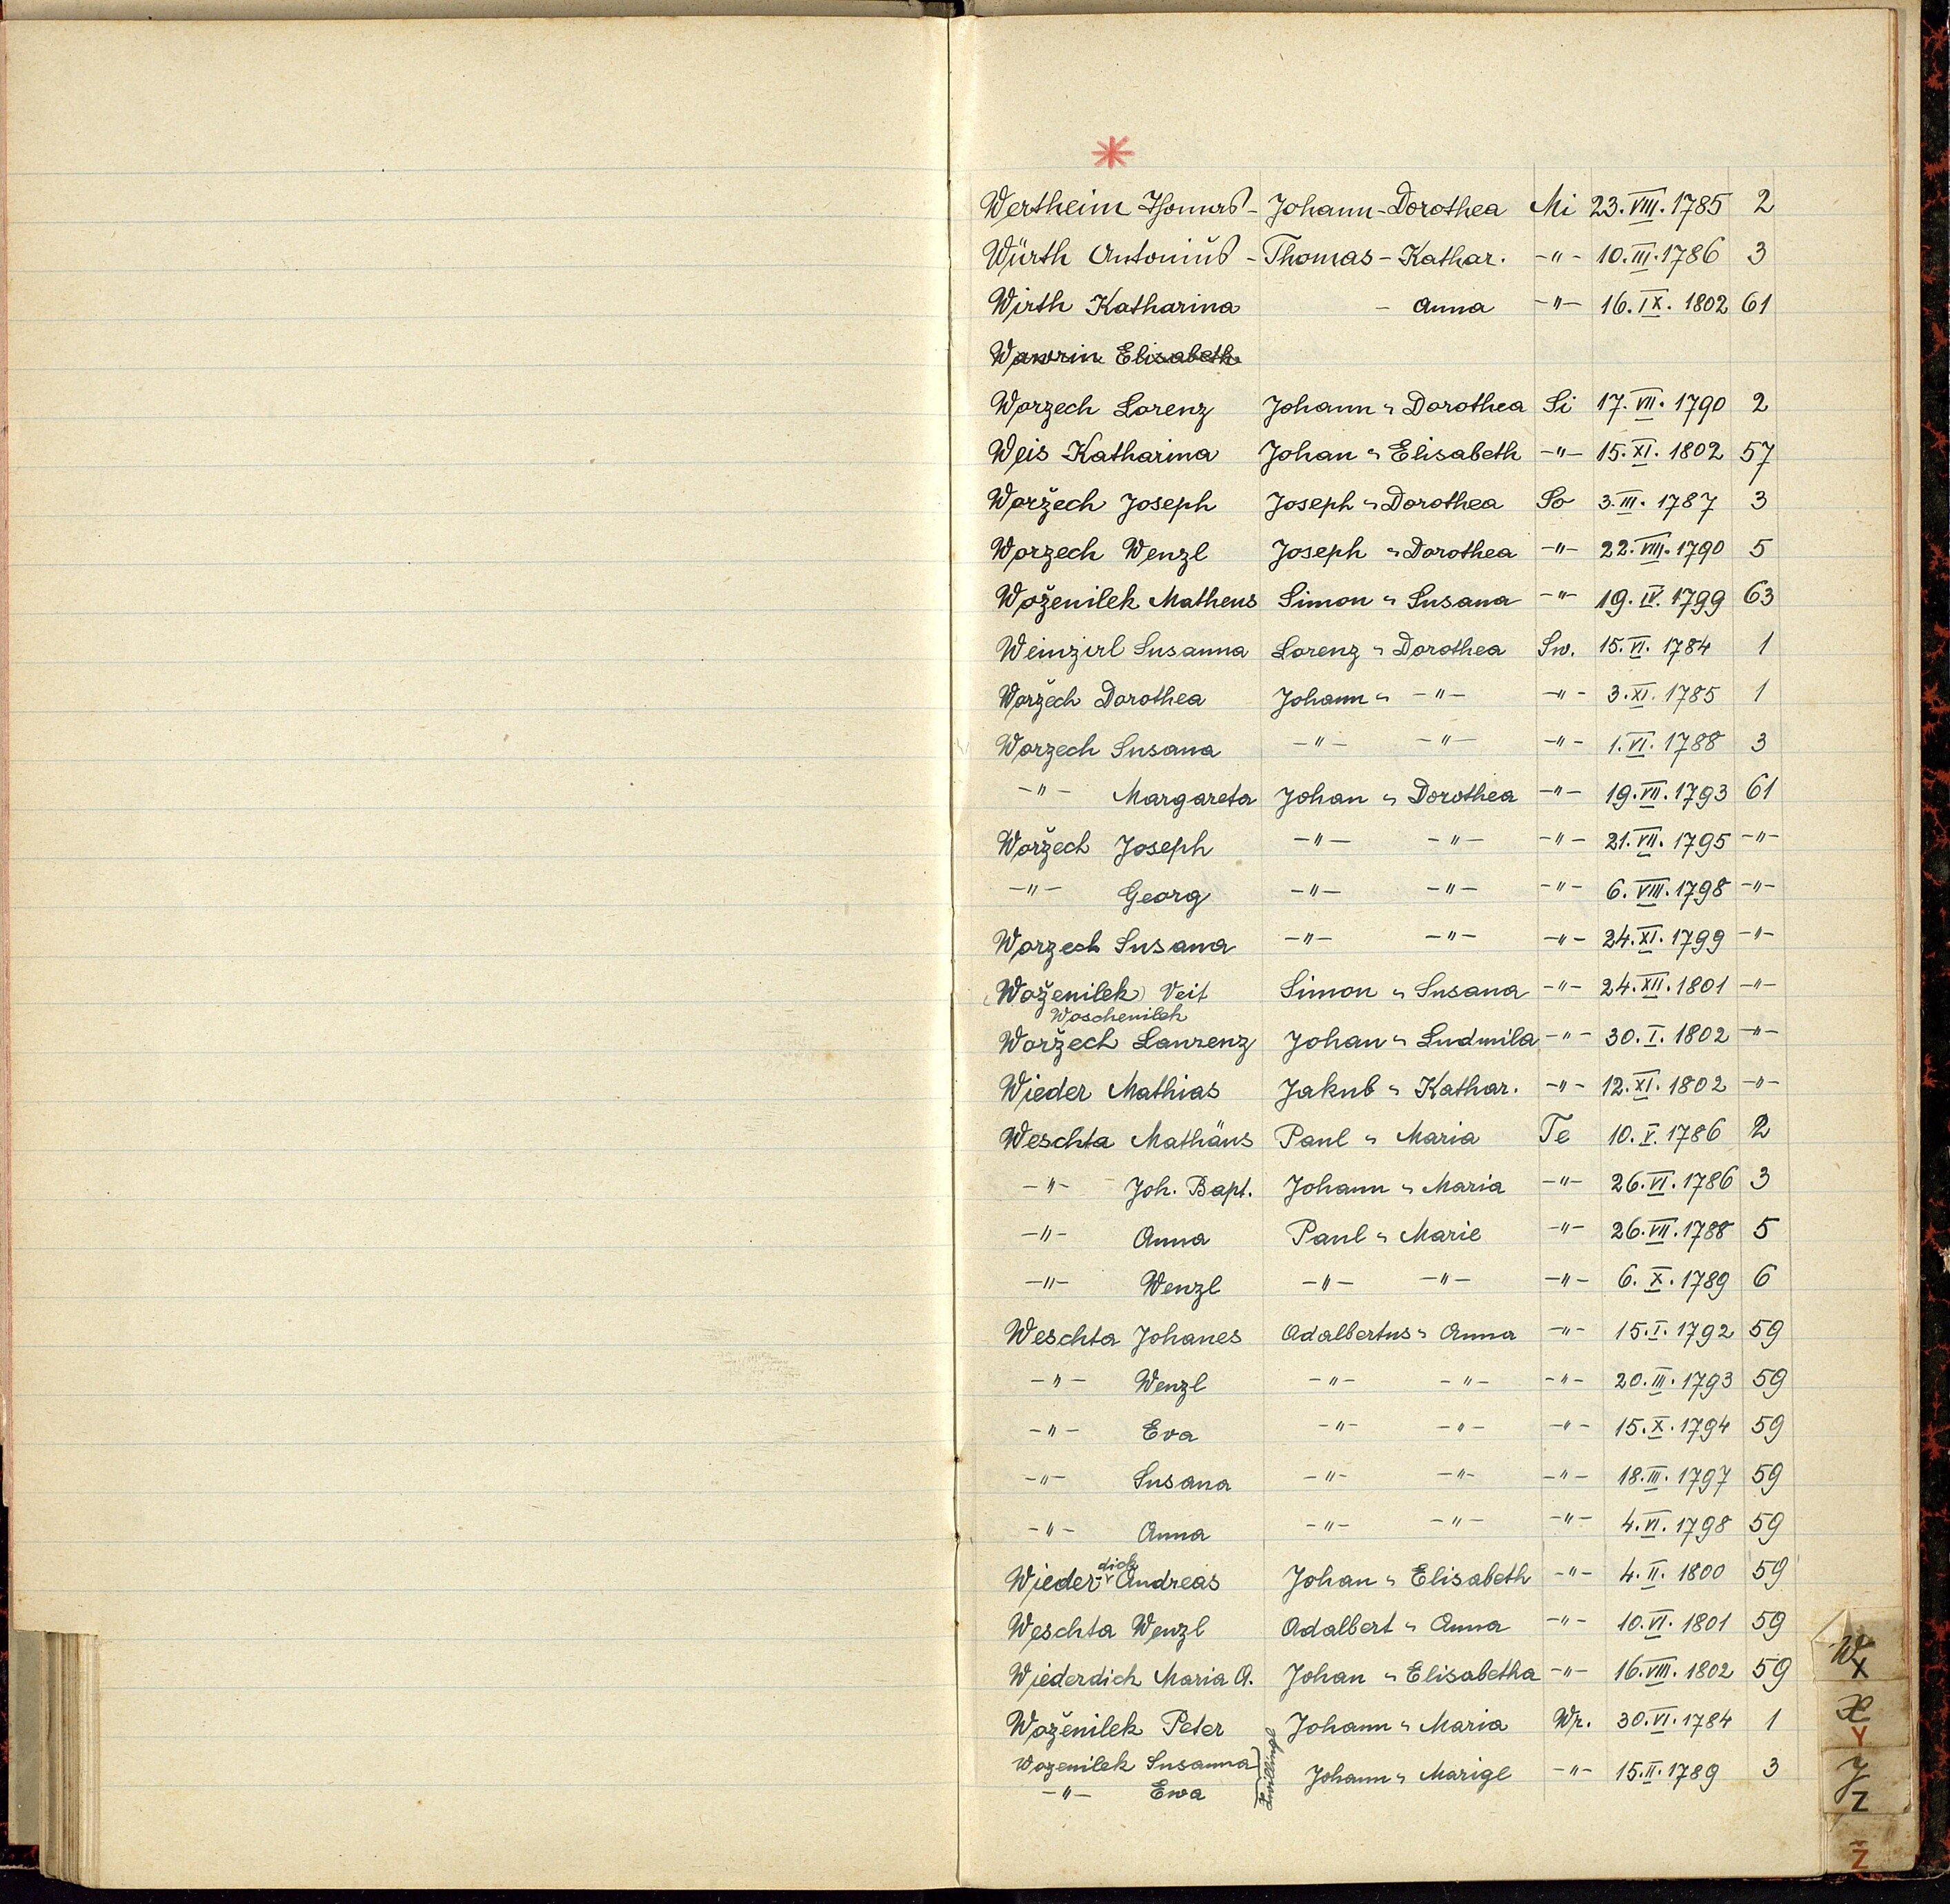 Wertheim Thomas - Johann - Dorothea Mi 23.VIII.1785 2
Würth Antonius - Thomas - Kathar. -"- 10.III.1786 3
Wirth Katharina - Anna -"- 16.IX.1802 61
Wawrin Elisabeth
Worzech Lorenz Johann " Dorothea Si 17.VII.1790 2
Weis Katharina Johan " Elisabeth -"- 15.XI.1802 57
Woržech Joseph Joseph " Dorothea So 3.III.1787 3
Worzech Wenzl Joseph " Dorothea -"- 22.VIII.1790 5
Woženilek Matheus Simon " Susana -"- 19.IV.1799 63
Weinzirl Susanna Lorenz " Dorothea Sw. 15.VI.1784 1
Woržech Dorothea Johann " -"- -"- 3.XI.1785 1
Worzech Susana -"- -"- -"- 1.VI.1788 3
-"- Margareta Johan " Dorothea -"- 19.VII.1793 61
Woržech Joseph -"- -"- -"- 21.VII.1795 -"-
-"- Georg -"- -"- -"- 6.VIII.1798 -"-
Worzech Susana -"- -"- -"- 24.XI.1799 -"-
(Woženilek) Veit Simon " Susana -"- 24.XII.1801 -"-
Woschenilek
Woržech Laurenz Johan " Ludmila -"- 30.I.1802 -"-
Wieder Mathias Jakub " Kathar. -"- 12.XI.1802 -"-
Weschta Mathäus Paul " Maria Te 10.V.1786 2
-"- Joh. Bapt. Johann " Maria -"- 26.VI.1786 3
-"- Anna Paul " Marie -"- 26.VII.1788 5
-"- Wenzl -"- -"- -"- 6.X.1789 6
Weschta Johanes Adalbertus " Anna -"- 15.I.1792 59
-"- Wenzl -"- -"- -"- 20.III.1793 59
-"- Eva -"- -"- -"- 15.X.1794 59
-"- Susana -"- -"- -"- 18.III.1797 59
-"- Anna -"- -"- -"- 4.VI.1798 59
dich
Wieder Andreas Johan " Elisabeth -"- 4.II.1800 59
Weschta Wenzl Adalbert " Anna -"- 10.VI.1801 59
Wiederdich Maria A. Johan " Elisabetha -"- 16.VIII.1802 59
Woženilek Peter Johann " Maria Wr. 30.VI.1784 1
Wozenilek Susanna Zwillinge Johann " Marige -"- 15.II.1789 3
-"- Ewa
W
X
X
Y
Y
Z
Z